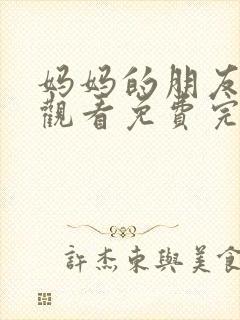 妈妈的朋友
觀看免費完
許杰東與美食